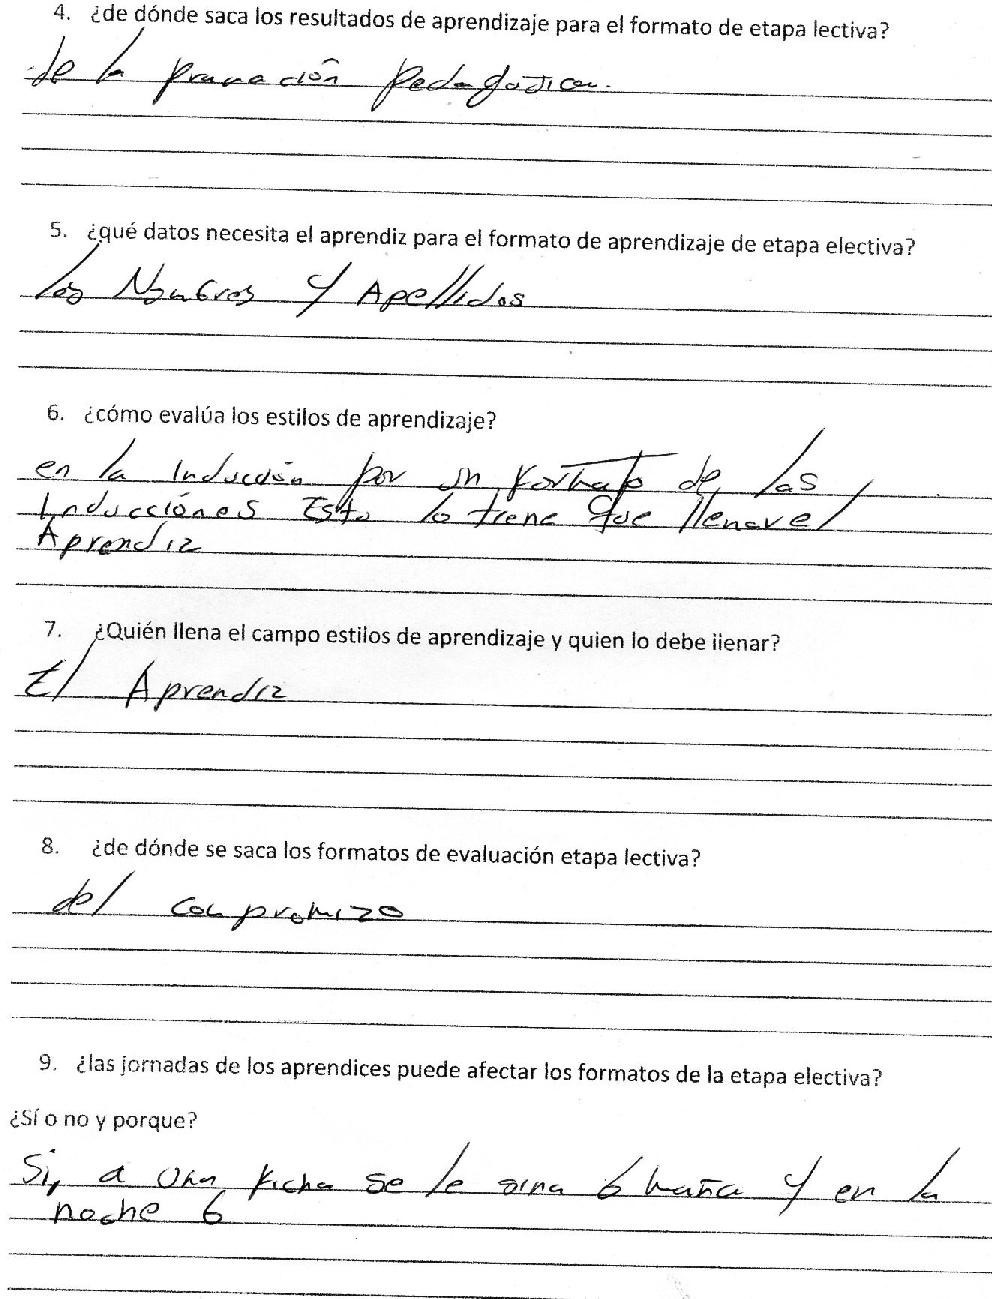 4. ¿de dónde saca los resultados de aprendizaje para el formato de etapa lectiva?
de la
5. ¿qué datos necesita el aprendiz para el formato de aprendizaje de etapa electiva?
los Nombres y Apellidos
6. ¿cómo evalúa los estilos de aprendizaje?
en la Inducción por un formato de las
Inducciónes Esto lo tiene que llenar el
Aprendiz
7. ¿Quién llena el campo estilos de aprendizaje y quien lo debe llenar?
El Aprendiz
8. ¿de dónde se saca los formatos de evaluación etapa lectiva?
del compromizo
9. ¿las jornadas de los aprendices puede afectar los formatos de la etapa electiva?
¿Sí o no y porque?
Si, a una ficha se le 6 mañana y en la
noche 6